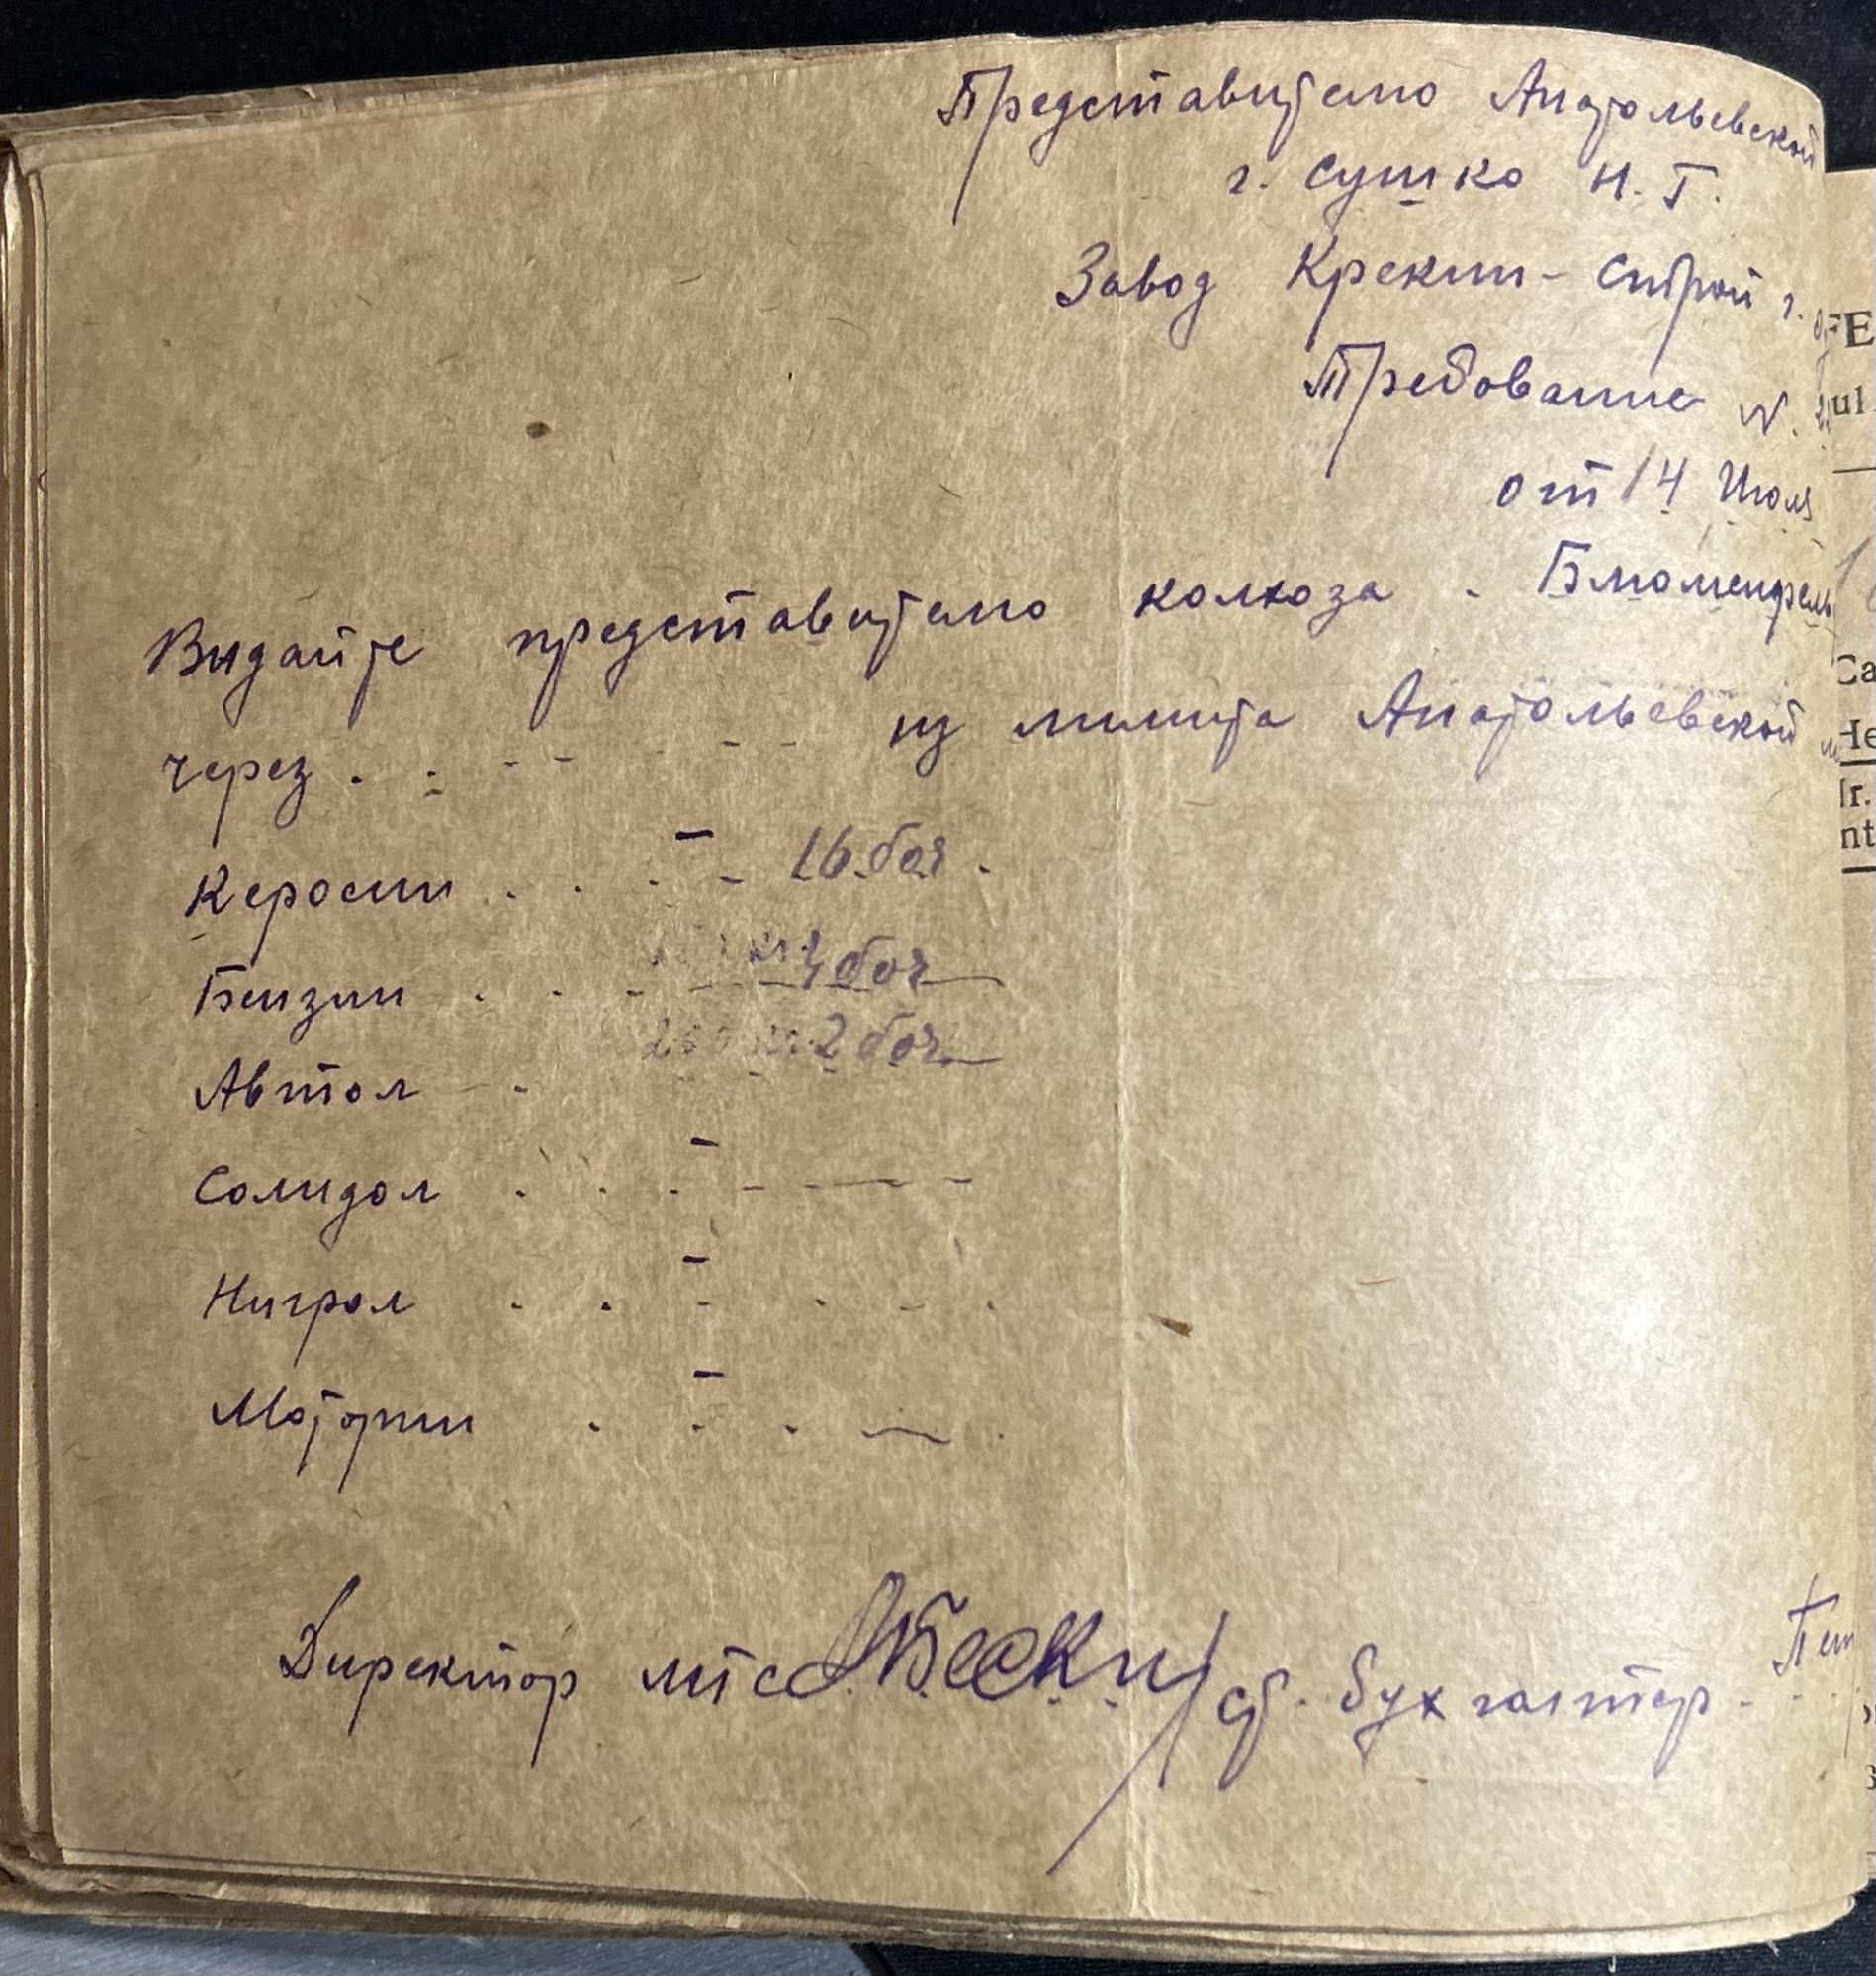 Представителю Анатольевской
г. Сушко Н. Г.
Завод Крекин-Строй г.
Требование №.
от 14 Июля
Выдайте представителю колхоза. Блюменфель
через . . - - - - из лимита Анатольевской
Керосин . . . - 16 боч.
Бензин . . . - боч
Автол . 2 боч
Солидол . . . - - -
Нигрол . . - . - .
Моторин . . . - .
Директор мтс ст. бухгалтер -
FE
ul
Ca
He
nt